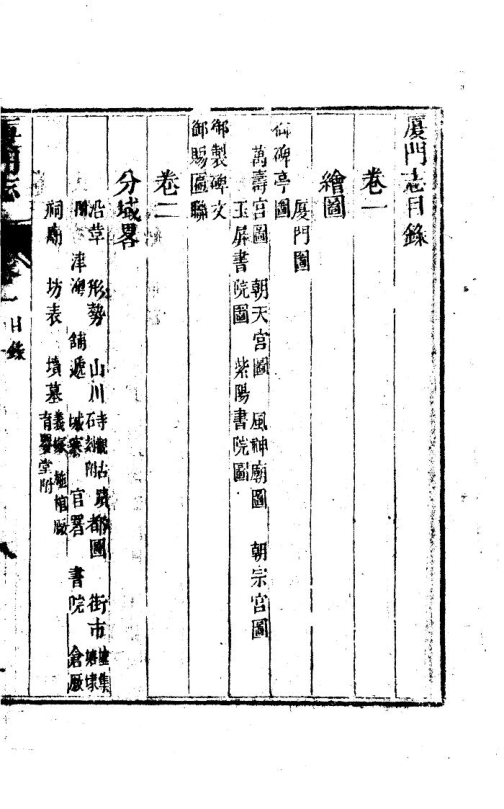 厦門志目錄
卷一
繪圖
厦門圖
御碑亭圖
萬壽宮圖 朝天宮圖 風神廟圖 朝宗宮圖
玉屏書院圖 紫陽書院圖
御製碑文
御賜匾聯
卷二
分域畧
沿革 形勢 山川 寺觀古石刻附 蹟 都圖 街市 墟集
津澳 舖遞 城寨 官署 書院 倉厫
祠廟 坊表 墳墓 義塚 施棺厰 育嬰堂附
厦門志 卷 目錄